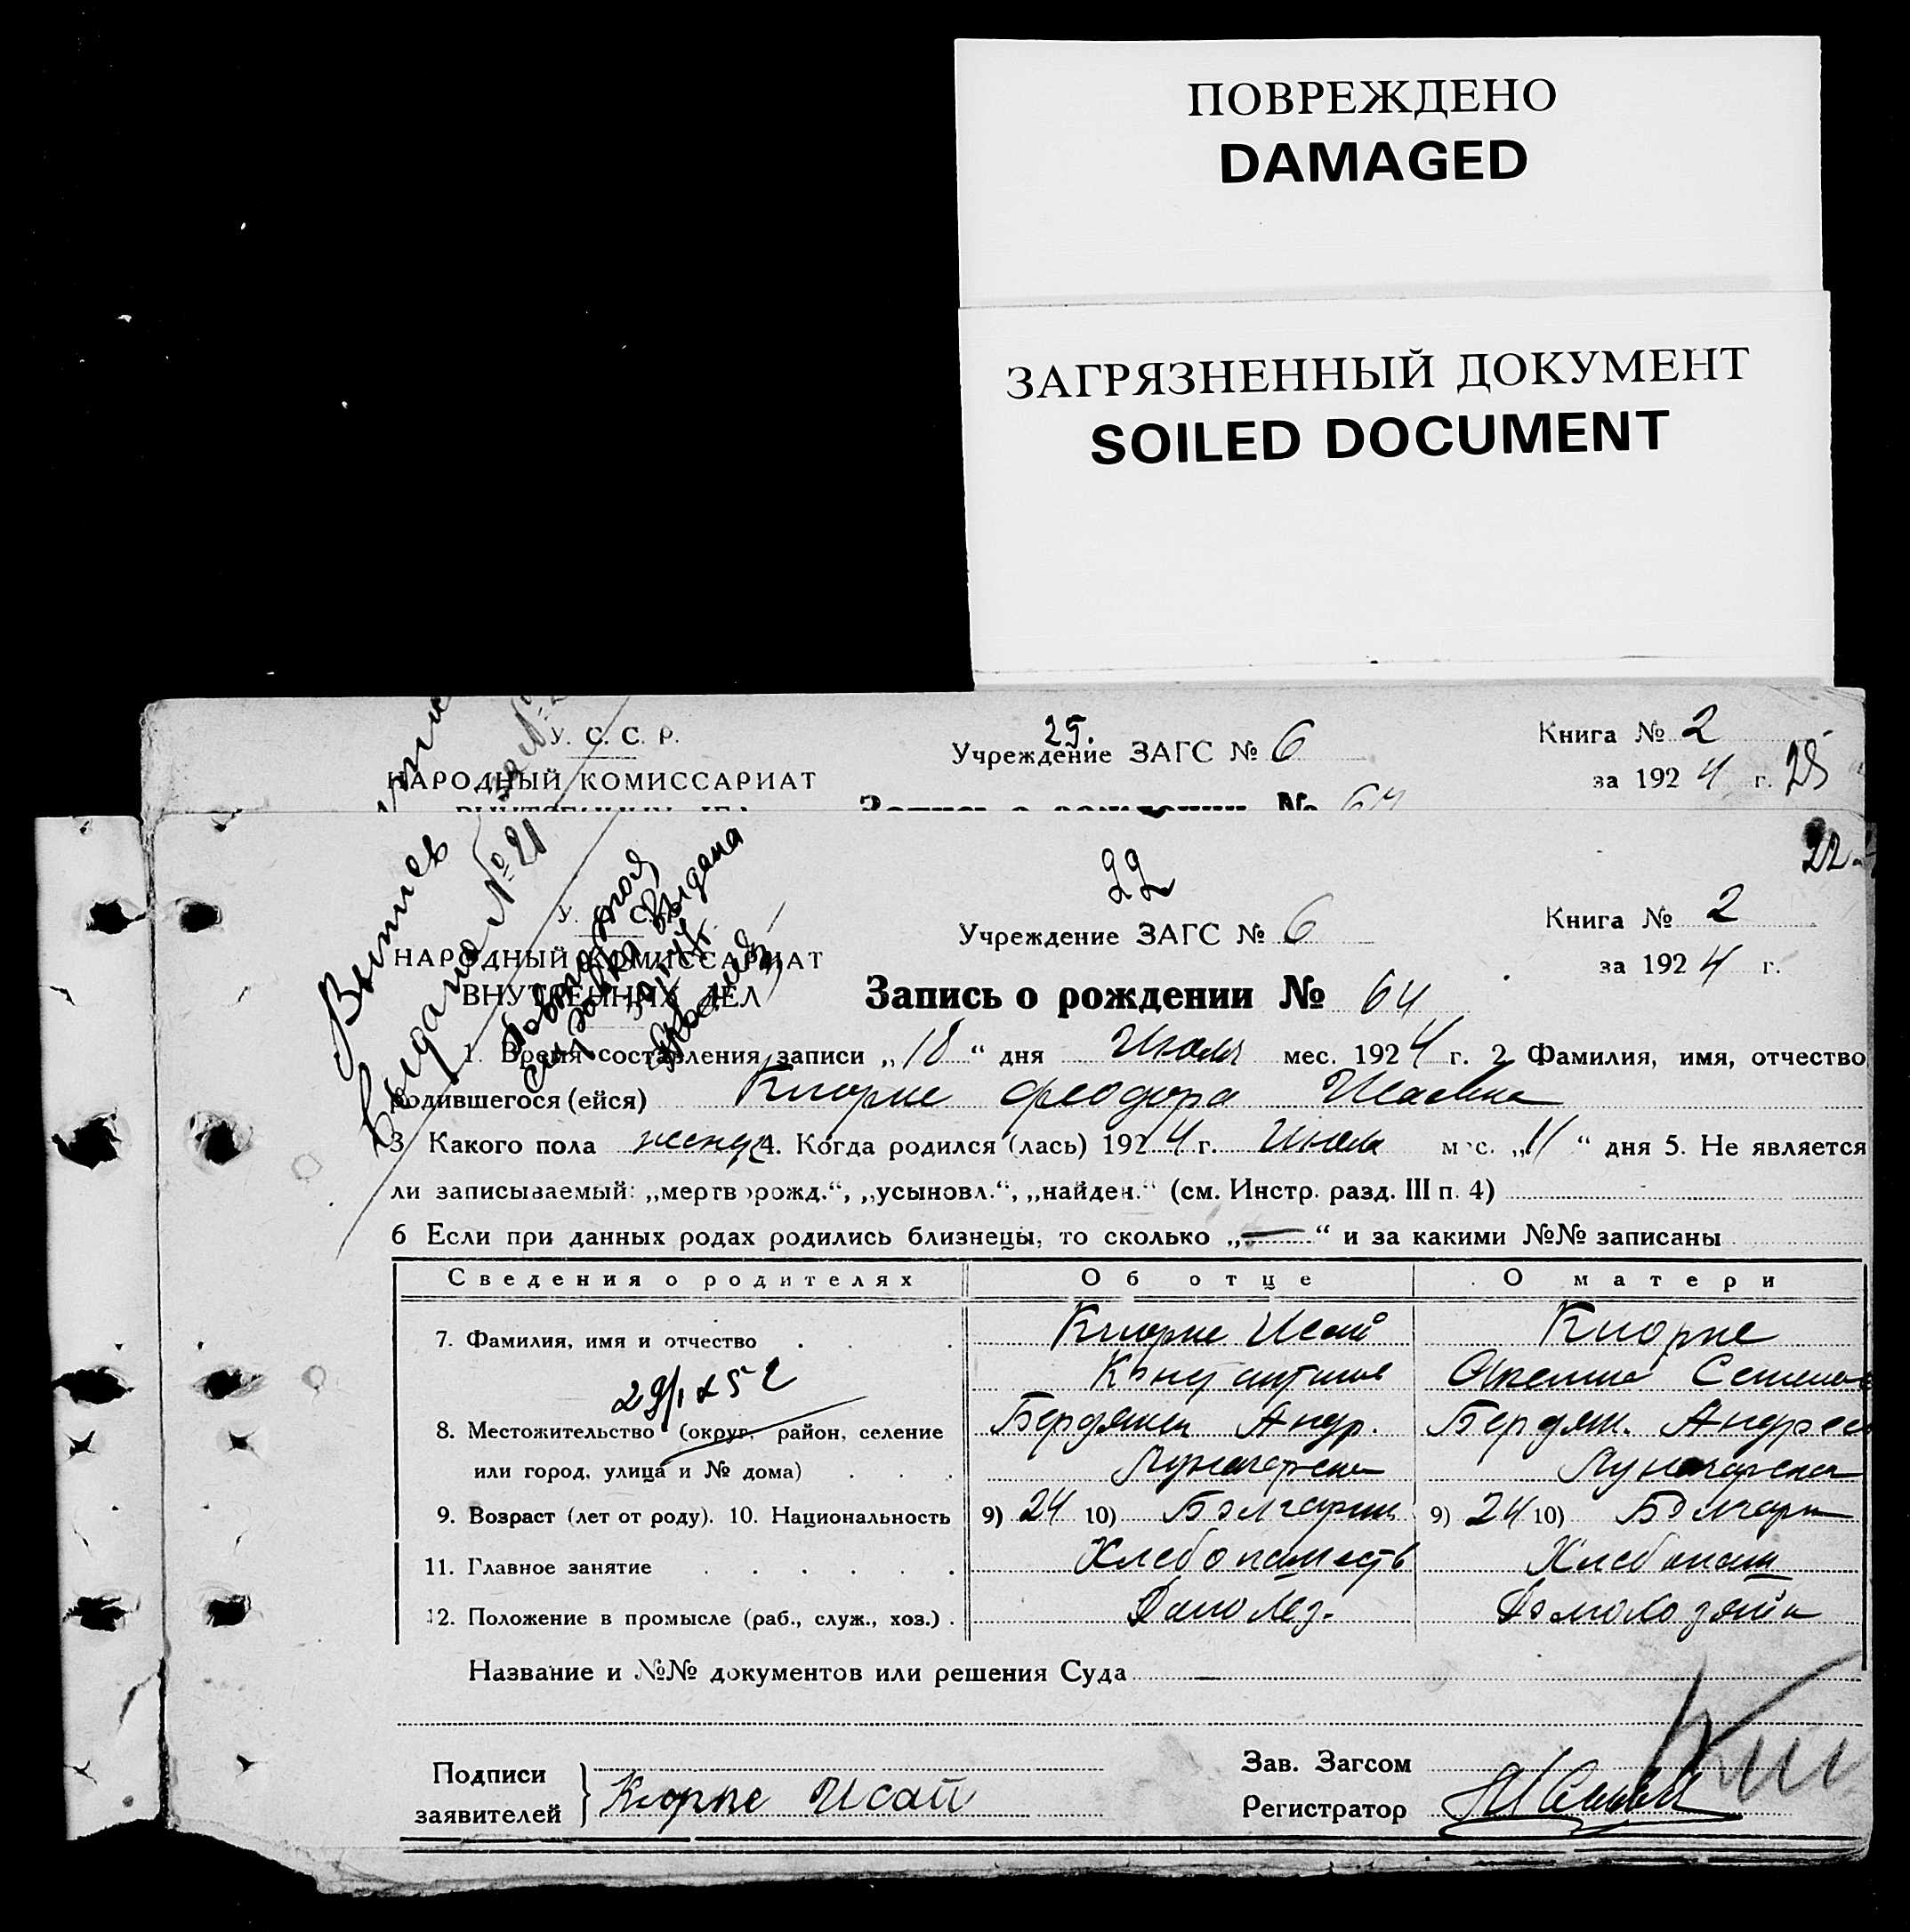 ПОВРЕЖДЕНО
DAMAGED
ЗАГРЯЗНЕННЫЙ ДОКУМЕНТ
SOILED DOCUMENT
У. С. С. Р.
НАРОДНЫЙ КОМИССАРИАТ
25.
Учреждение ЗАГС № 6
Книга № 2
за 1924 г. 25
Запись о рождении № 64
22
22
У. С. С. Р.
НАРОДНЫЙ КОМИССАРИАТ
ВНУТРЕННИХ ДЕЛ
Выдана № 21
выдана
Учреждение ЗАГС № 6
Книга № 2
за 1924 г.
Запись о рождении № 64
1. Время составления записи „18“ дня Июля мес. 1924 г. 2 Фамилия, имя, отчество
родившегося (ейся) Кюрпе Феодора Исаевна
3 Какого пола женск 4. Когда родился (лась) 1924 г. Июля мес. „11“ дня 5. Не является
ли записываемый: „мертворожд.“, „усыновл.“, „найден.“ (см. Инстр. разд. III п. 4)
6 Если при данных родах родились близнецы, то сколько „—“ и за какими №№ записаны
Сведения о родителях Об отце О матери
7. Фамилия, имя и отчество Кюрпе Исай Кюрпе
Константинов Семенов
8. Местожительство (округ, район, селение Бердянск Андр. Бердян. Андреев
или город, улица и № дома)
9. Возраст (лет от роду). 10. Национальность 9) 24 10) Болгарин 9) 24 10) Болгарк
11. Главное занятие Хлебопашеств Хлебопаш
12. Положение в промысле (раб., служ., хоз.) Домохоз. Домохозяйк
Название и №№ документов или решения Суда —
Подписи
заявителей Кюрпе Исай
Зав. Загсом
Регистратор